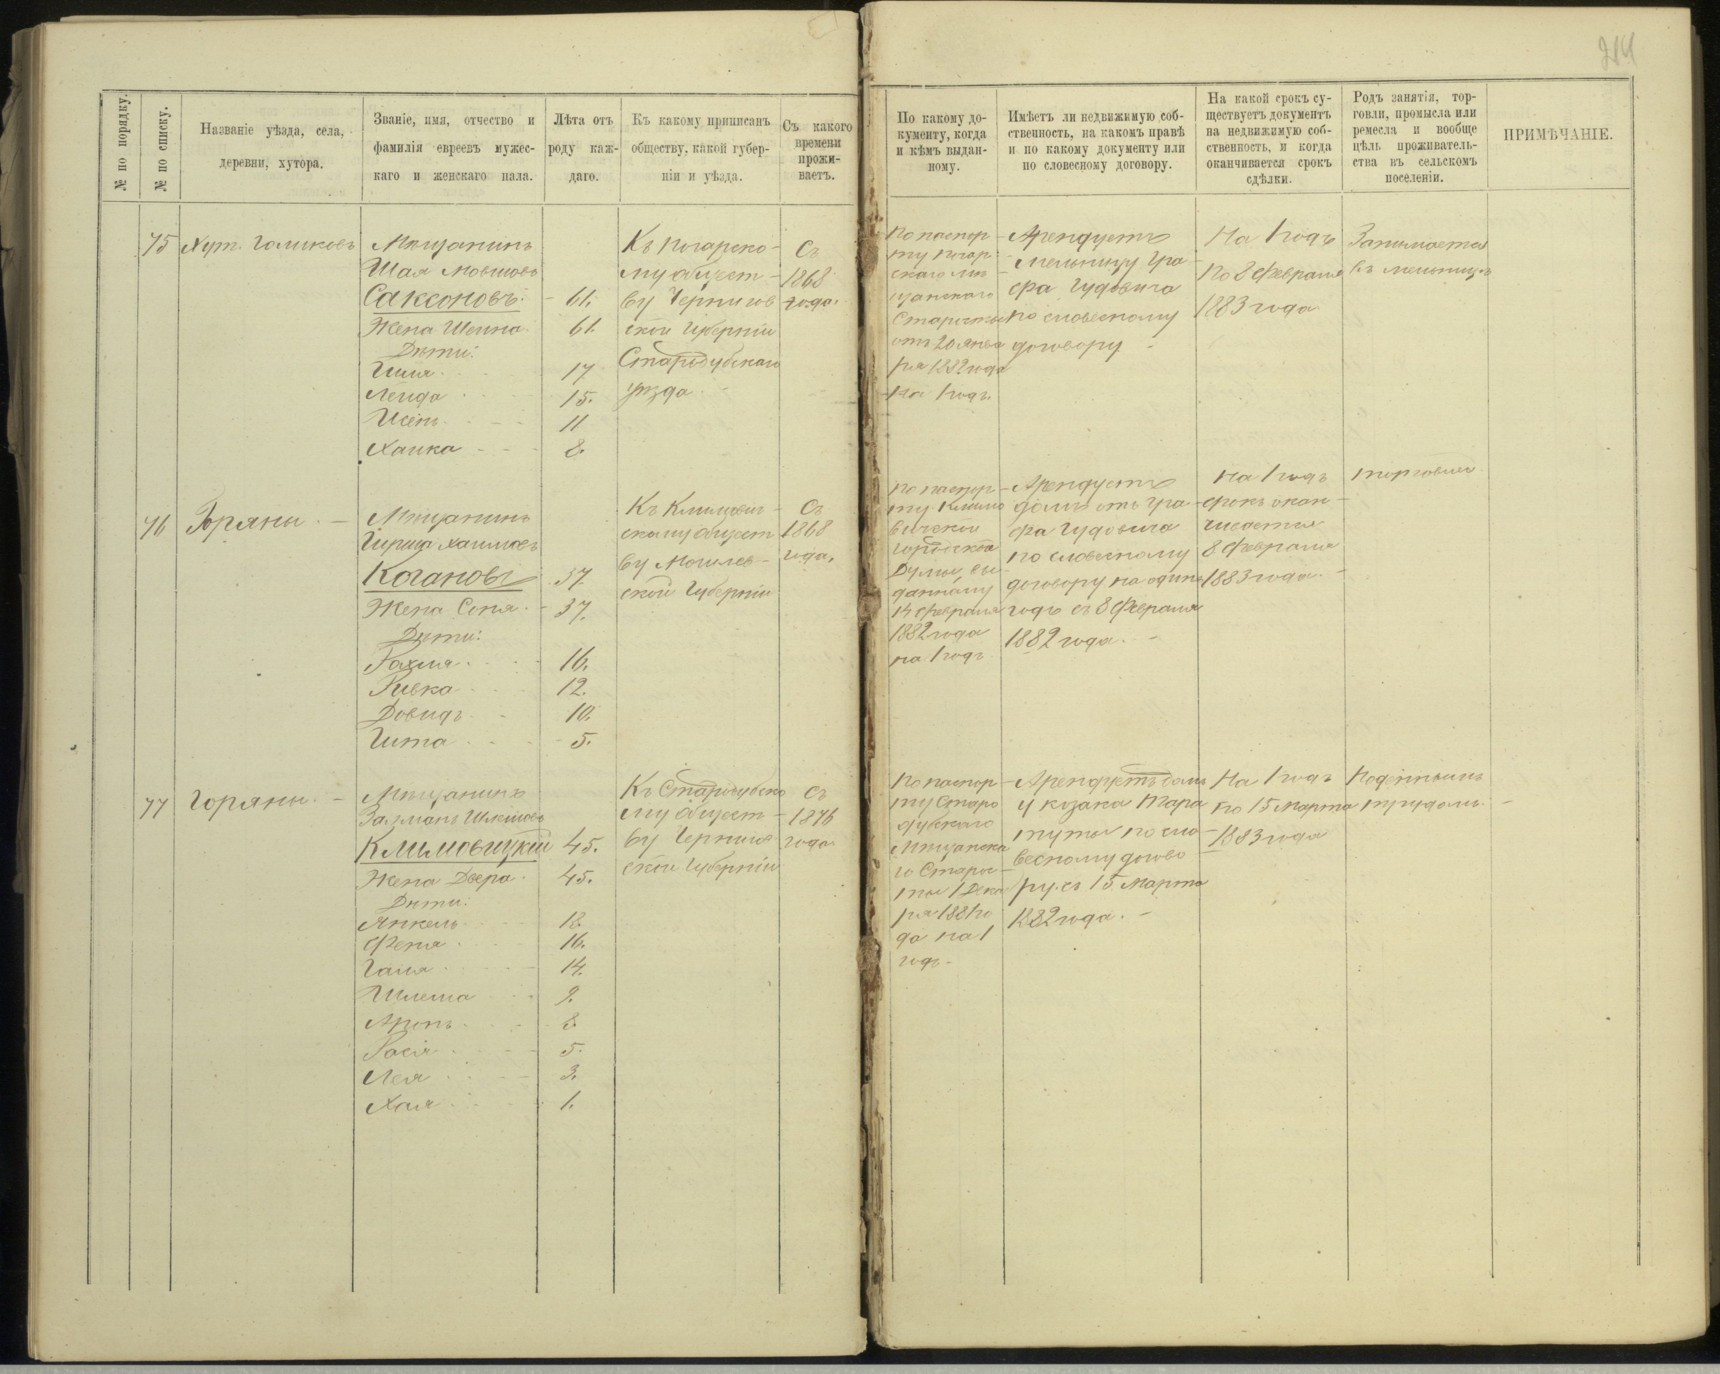 214
№ по порядку.
№ по списку.
Названіе уѣзда, села,
деревни, хутора.
Званіе, имя, отчество и
фамилія евреевъ мужес-
каго и женскаго пала.
Лѣта отъ
роду каж-
даго.
Къ какому приписанъ
обществу, какой губер-
ніи и уѣзда.
Съ какого
времени
прожи-
ваетъ.
По какому до-
кументу, когда
и кѣмъ выдан-
ному.
Имѣетъ ли недвижимую соб-
ственность, на какомъ правѣ
и по какому документу или
по словесному договору.
На какой срокъ су-
ществуетъ документъ
на недвижимую соб-
ственность, и когда
оканчивается срокъ
сдѣлки.
Родъ занятія, тор-
говли, промысла или
ремесла и вообще
цѣль проживатель-
ства въ сельскомъ
поселеніи.
ПРИМѢЧАНІЕ.
75
Хут. Голиковъ
Мѣщанинъ
Шая Мовшовъ
Саксоновъ. - 61.
Жена Шейна 61.
Дѣти:
17
15.
11
Ханка - - 8.
Къ Погарско-
му общест-
ву Чернигов
ской Губерніи
Стародубскаго
уѣзда
Съ
1868
года.
По паспор-
ту Погар-
скаго мѣ
щанскаго
Старосты
отъ 20 Янва
ря 1882 года
на 1 годъ.
Арендуетъ
мельницу Гра-
фа Гудовича
по словесному
договору -
На 1 годъ
по 8 Февраля
1883 года
Занимается
въ мельницѣ
76
Горяны. -
Мѣщанинъ
Гирша Хаимовъ
Когановъ 37.
Жена Соня. - 37.
Дѣти:
Рахля. 16.
Ривка 12.
Довидъ. - 10.
Гита - 5.
Къ Климович-
скому общест
ву Могилев-
ской Губерніи
Съ
1868
года.
По паспор-
ту Климо
вичской
Городской
Думы, вы-
данному
14 Февраля
1882 года
на 1 годъ
Арендуетъ
домъ отъ Гра-
фа Гудовича
по словесному
договору на одинъ
годъ съ 8 Февраля
1882 года. -
На 1 годъ
срокъ окан-
чивается
8 Февраля
1883 года. -
торговлею
77
Горяны. -
Мѣщанинъ
Залманъ Шлемовъ
Климовицкій 45.
Жена Двера. 45.
Дѣти:
Янкель 18.
Феня 16.
Галя 14.
Шлема 9.
Аронъ 8.
Рася 5.
Лея 3.
Хая 1.
Къ Стародубско
му общест-
ву Чернигов
ской Губерніи
Съ
1876
года
По паспор
ту Старо
дубскаго
Мѣщанска
го Старос-
ты 1 Дека
ря 1881 го
да на 1
годъ -
Арендуетъ домъ
у козака Тара
туты по сло-
весному догово
ру съ 15 Марта
1882 года. -
На 1 годъ
по 15 Марта
1883 года
Поденнымъ
трудомъ. -